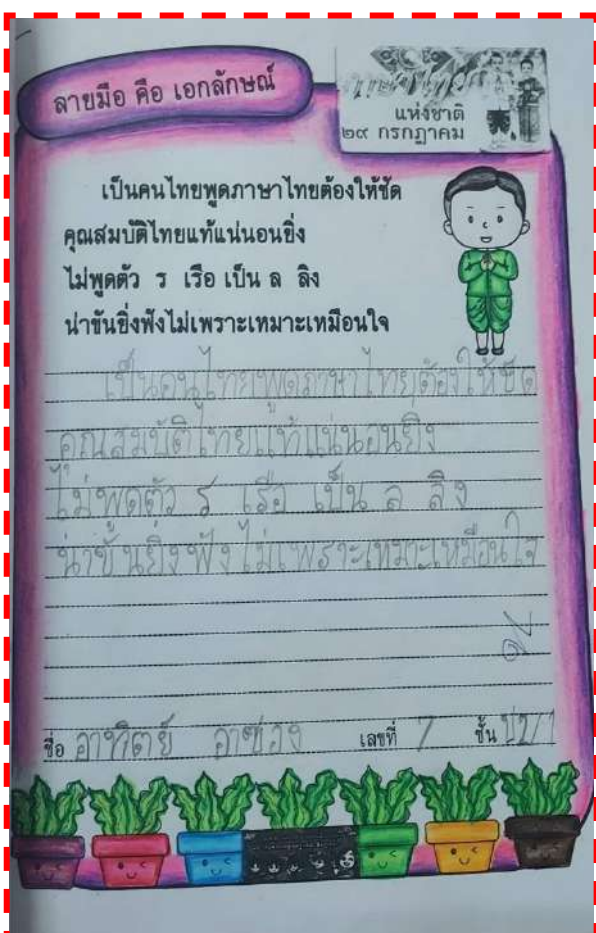 ลายมือ คือ เอกลักษณ์
ภาษาไทย
แห่งชาติ
๒๙ กรกฎาคม
เป็นคนไทยพูดภาษาไทยต้องให้ชัด
คุณสมบัติไทยแท้แน่นอนยิ่ง
ไม่พูดตัว ร เรือ เป็น ล ลิง
น่าขันยิ่งฟังไม่เพราะเหมาะเหมือนใจ
เป็นคนไทยพูดภาษาไทยต้องให้ชัด
คุณสมบัติไทยแท้แน่นอนยิ่ง
ไม่พูดตัว ร เรือ เป็น ล ลิง
น่าขันยิ่งฟังไม่เพราะเหมาะเหมือนใจ
ชื่อ อาทิตย์ เลขที่ 7 ชั้น